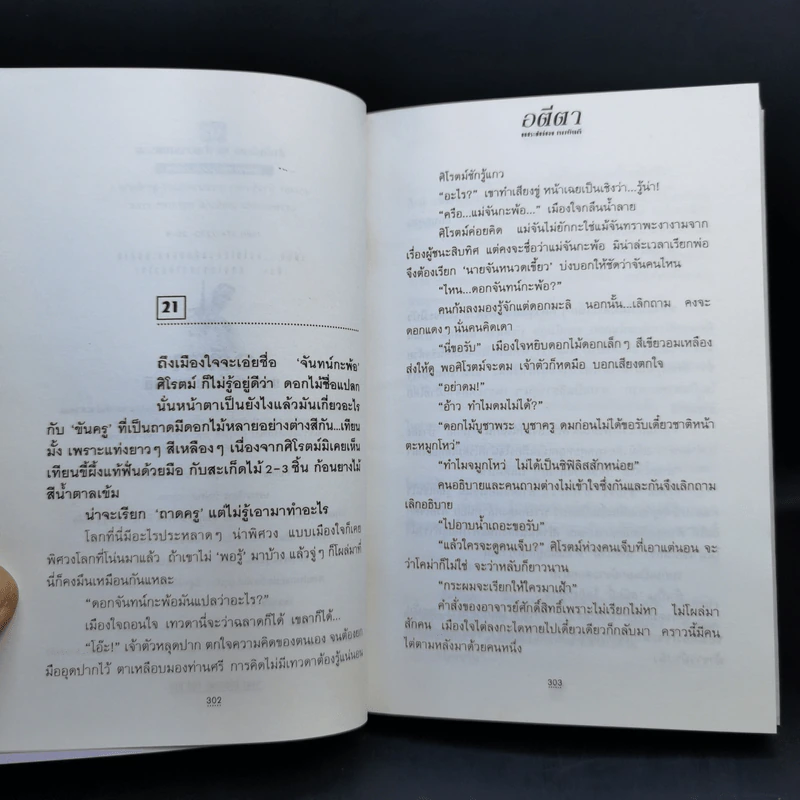 21
ถึงเมืองใจจะเอ่ยชื่อ 'จันทน์กะพ้อ'
ศิโรตม์ ก็ไม่รู้อยู่ดีว่า ดอกไม้ชื่อแปลก
นั่นหน้าตาเป็นยังไงแล้วมันเกี่ยวอะไร
กับ 'ขันครู' ที่เป็นถาดมีดอกไม้หลายอย่างต่างสีกัน...เทียน
มั้ง เพราะแท่งยาวๆ สีเหลืองๆ เนื่องจากศิโรตม์มิเคยเห็น
เทียนขี้ผึ้งแท้ฟั่นด้วยมือ กับสะเก็ดไม้ 2-3 ชิ้น ก้อนยางไม้
สีน้ำตาลเข้ม
น่าจะเรียก 'ถาดครู' แต่ไม่รู้เอามาทำอะไร
โลกที่นี่มีอะไรประหลาดๆ น่าพิศวง แบบเมืองใจก็เคย
พิศวงโลกที่โน่นมาแล้ว ถ้าเขาไม่ 'พอรู้' มาบ้าง แล้วจู่ๆ ก็โผล่มาที่
นี่ก็คงมึนเหมือนกันแหละ
"ดอกจันทน์กะพ้อมันแปลว่าอะไร?"
เมืองใจถอนใจ เทวดานี่จะว่าฉลาดก็ได้ เขลาก็ได้...
"โอ๊ะ!" เจ้าตัวหลุดปาก ตกใจความคิดของตนเอง จนต้องยก
มืออุดปากไว้ ตาเหลือบมองท่านศรี การคิดไม่มีเทวดาต้องรู้แน่นอน
302
อตีตา
ศิโรตม์ชักรู้แกว
"อะไร?" เขาทำเสียงขู่ หน้าเฉยเป็นเชิงว่า...รู้น่า!
"ครือ...แม่จันกะพ้อ..." เมืองใจกลืนน้ำลาย
ศิโรตม์ค่อยคิด แม่จันไม่ยักกะใช่แม้จันทราพะงางามจาก
เรื่องผู้ชนะสิบทิศ แต่คงจะชื่อว่าแม่จันกะพ้อ มิน่าล่ะเวลาเรียกพ่อ
จึงต้องเรียก 'นายจันหนวดเขี้ยว' บ่งบอกให้ชัดว่าจันคนไหน
"ไหน...ดอกจันทน์กะพ้อ?"
คนก้มลงมองรู้จักแต่ดอกมะลิ นอกนั้น...เลิกถาม คงจะ
ดอกแดงๆ นั่นคนคิดเดา
"นี่ขอรับ" เมืองใจหยิบดอกไม้ดอกเล็กๆ สีเขียวอมเหลือง
ส่งให้ดู พอศิโรตม์จะดม เจ้าตัวก็หดมือ บอกเสียงตกใจ
"อย่าดม!"
"อ้าว ทำไมดมไม่ได้?"
"ดอกไม้บูชาพระ บูชาครู ดมก่อนไม่ได้ขอรับเดี๋ยวชาติหน้า
ตะหมูกโหว่"
"ทำไมจมูกโหว่ ไม่ได้เป็นซิฟิลิสสักหน่อย"
คนอธิบายและคนถามต่างไม่เข้าใจซึ่งกันและกันจึงเลิกถาม
เลิกอธิบาย
"ไปอาบน้ำเถอะขอรับ"
"แล้วใครจะดูคนเจ็บ?" ศิโรตม์ห่วงคนเจ็บที่เอาแต่นอน จะ
ว่าโคม่าก็ไม่ใช่ จะว่าหลับก็ยาวนาน
"กระผมจะเรียกให้ใครมาเฝ้า"
คำสั่งของอาจารย์ศักดิ์สิทธิ์เพราะไม่เรียกไม่หา ไม่โผล่มา
สักคน เมืองใจไต่ลงกะไดหายไปเดี๋ยวเดียวก็กลับมา คราวนี้มีคน
ไต่ตามหลังมาด้วยคนหนึ่ง
303